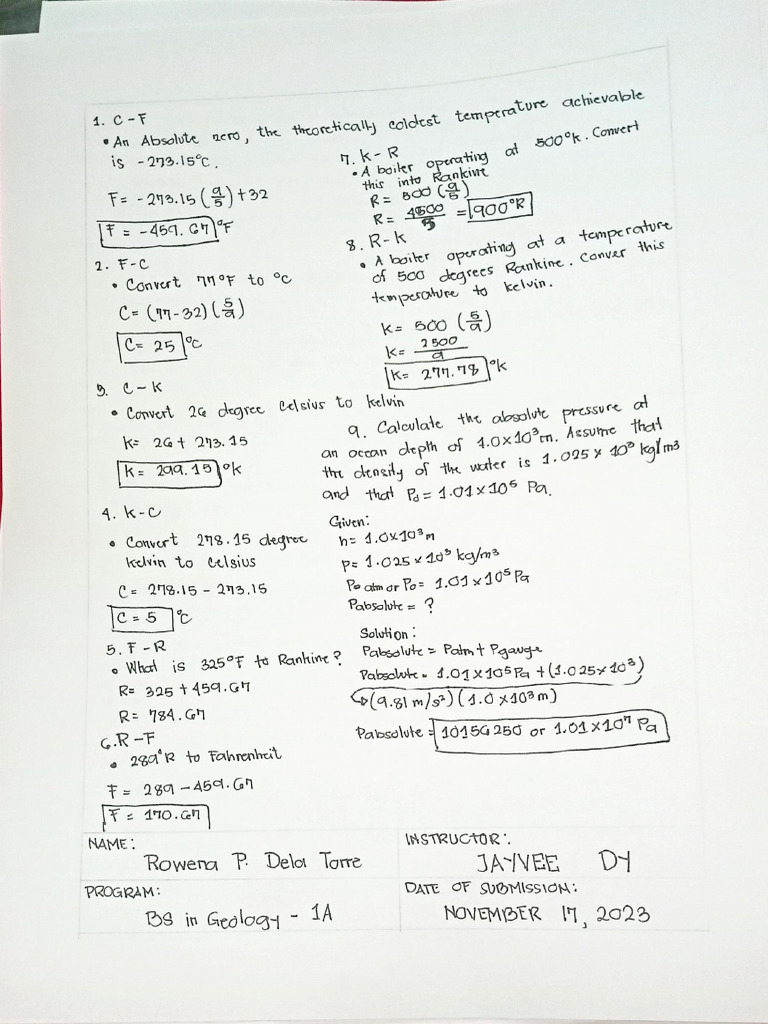 1. C - F
• An Absolute zero, the theoretically coldest temperature achievable
is -273.15°C.
F= -273.15 (9/5) + 32
F = -459.67 °F
2. F-C
• Convert 77°F to °C
C= (77-32) (5/9)
C= 25 °C
3. C - K
• Convert 26 degree Celsius to kelvin
K= 26 + 273.15
K= 299.15 °K
4. K-C
• Convert 278.15 degree
kelvin to Celsius
C= 278.15 - 273.15
C = 5 °C
5. F - R
• What is 325°F to Rankine?
R= 325 + 459.67
R= 784.67
6. R - F
• 289°R to Fahrenheit
F = 289 - 459.67
F = 170.67
7. K - R
• A boiler operating at 500°K. Convert
this into Rankine
R= 500 (9/5)
R= 4500/5 = 900°R
8. R-K
• A boiler operating at a temperature
of 500 degrees Rankine. Conver this
temperature to kelvin.
K= 500 (5/9)
K= 2500/9
K= 277.78 °K
9. Calculate the absolute pressure at
an ocean depth of 1.0x10³m. Assume that
the density of the water is 1.025 x 10³ kg/m3
and that Pd = 1.01 x 10⁵ Pa.
Given:
h= 1.0x10³m
p= 1.025 x 10³ kg/m³
P= atm or Po= 1.01 x 10⁵ Pa
Pabsolute = ?
Solution:
Pabsolute = Patm + Pgauge
Pabsolute = 1.01 x 10⁵Pa + (1.025x 10³)
↳(9.81 m/s²) (1.0 x10³m)
Pabsolute = 10156250 or 1.01 x10⁷ Pa
NAME:
Rowena P. Dela Torre
INSTRUCTOR:
JAYVEE DY
PROGRAM:
BS in Geology - 1A
DATE OF SUBMISSION:
NOVEMBER 17, 2023